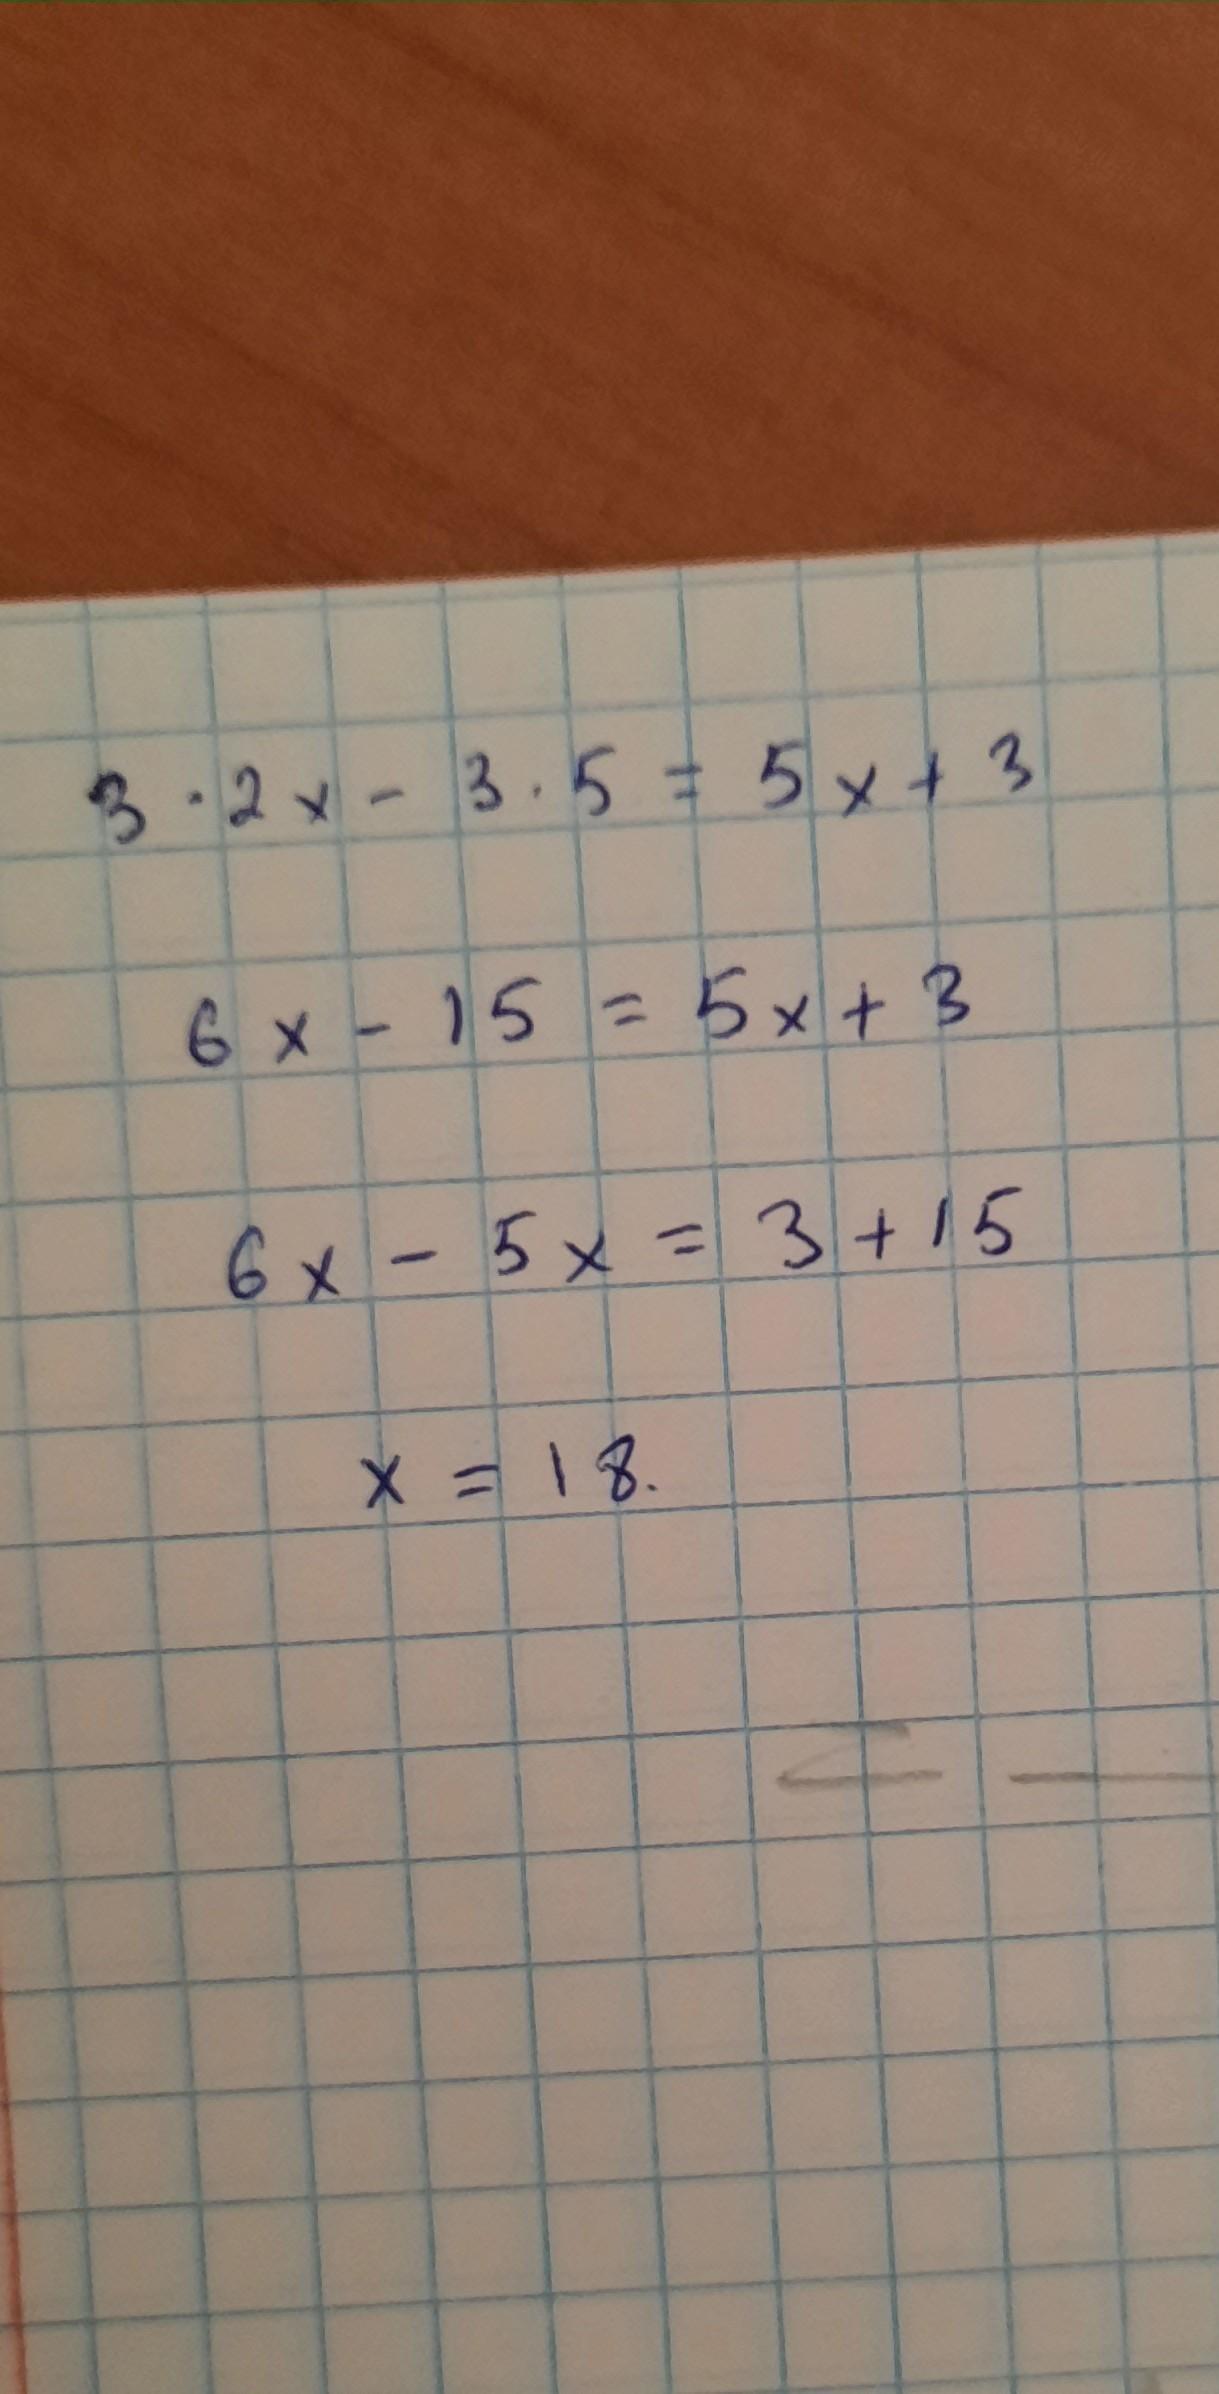 3 · 2x - 3 · 5 = 5x + 3
6x - 15 = 5x + 3
6x - 5x = 3 + 15
x = 18.